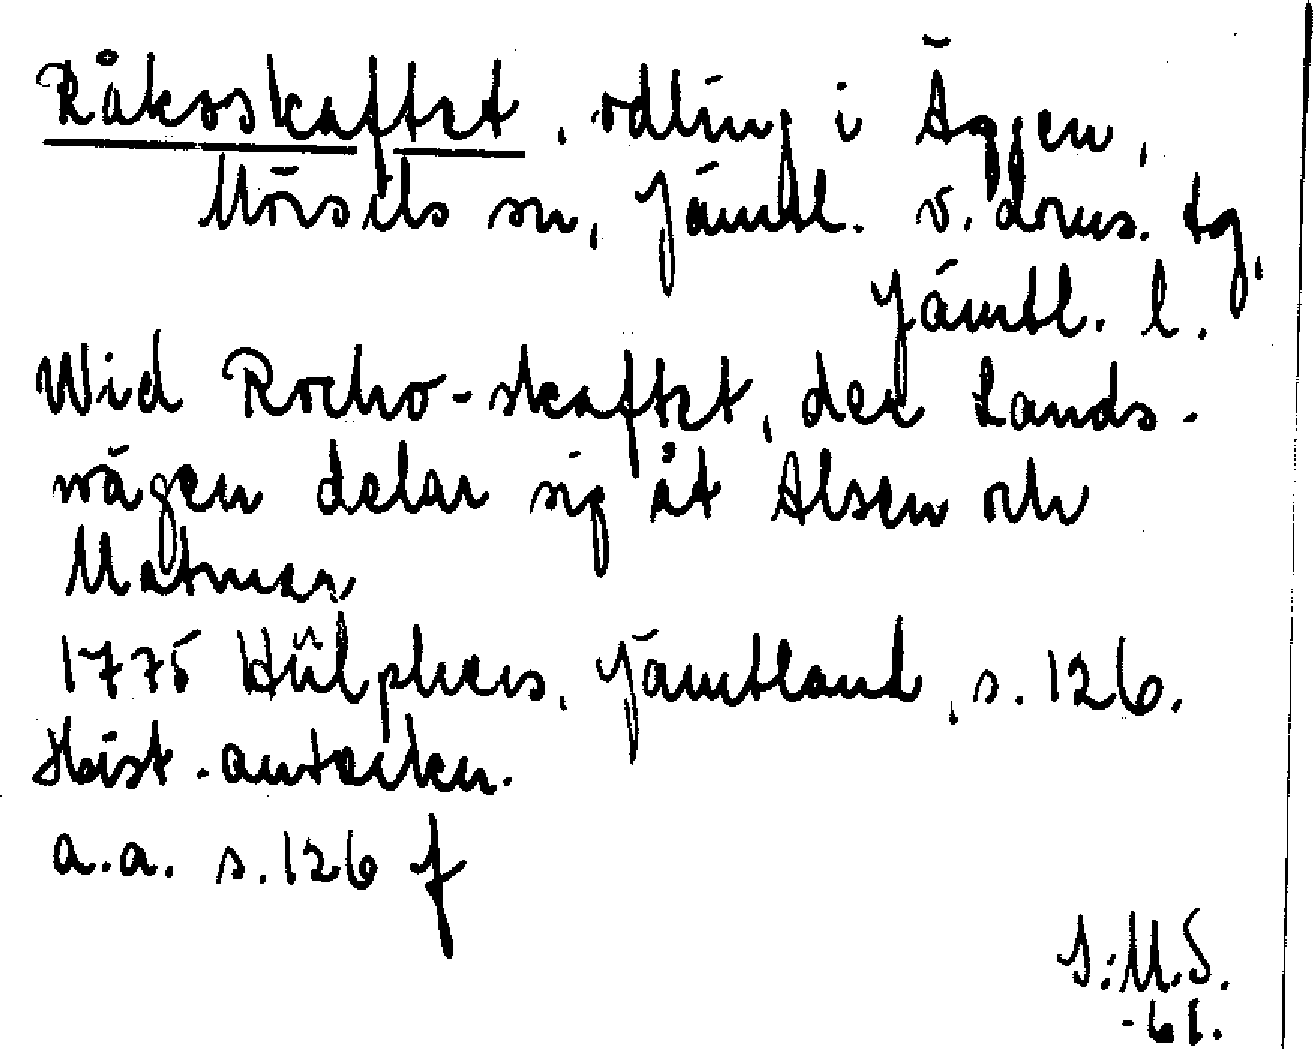 Råksskaftet, odling i Äggen,
Mörsils sn, Jämtl. v. doms. tg,
Jämtl. l.
Wid Rocko-skaftet, der Lands-
wägen delar sig åt Alsen och
Matmar
1775 Hülphers, Jämtland, s. 126.
Hist. anteckn.
a.a. s. 126 f
S:M.S.
-61.